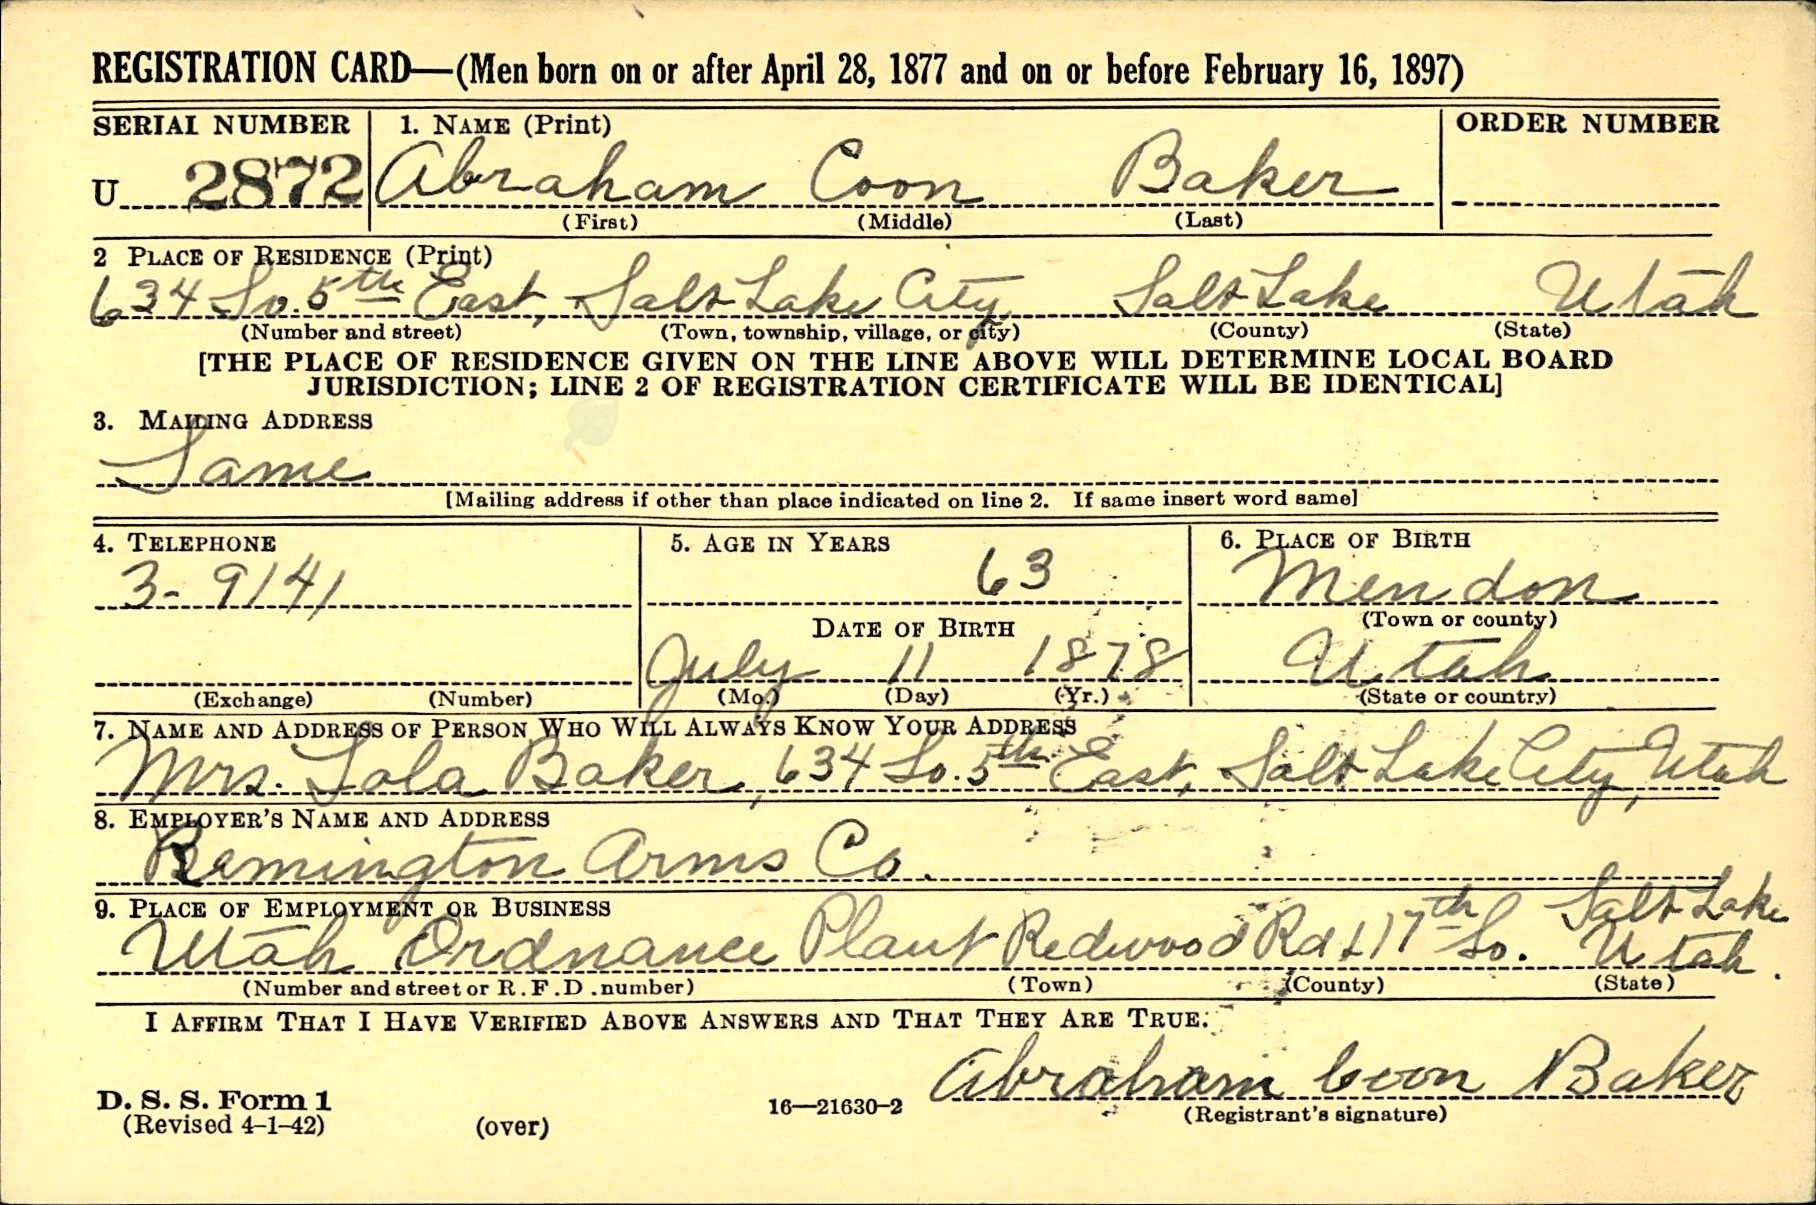 REGISTRATION CARD—(Men born on or after April 28, 1877 and on or before February 16, 1897)
SERIAL NUMBER 1. NAME (Print) ORDER NUMBER
U 2872 Abraham Coon Baker
(First) (Middle) (Last)
2 PLACE OF RESIDENCE (Print)
634 So. 5th East, Salt Lake City Salt Lake Utah
(Number and street) (Town, township, village, or city) (County) (State)
[THE PLACE OF RESIDENCE GIVEN ON THE LINE ABOVE WILL DETERMINE LOCAL BOARD
JURISDICTION; LINE 2 OF REGISTRATION CERTIFICATE WILL BE IDENTICAL]
3. MAILING ADDRESS
Same
[Mailing address if other than place indicated on line 2. If same insert word same]
4. TELEPHONE 5. AGE IN YEARS 6. PLACE OF BIRTH
3-9141 63 Mendon
(Town or county)
DATE OF BIRTH
July 11 1878 Utah
(Exchange) (Number) (Mo.) (Day) (Yr.) (State or country)
7. NAME AND ADDRESS OF PERSON WHO WILL ALWAYS KNOW YOUR ADDRESS
Mrs. Lola Baker, 634 So. 5th East, Salt Lake City, Utah
8. EMPLOYER'S NAME AND ADDRESS
Remington Arms Co.
9. PLACE OF EMPLOYMENT OR BUSINESS Salt Lake
Utah Ordnance Plant Redwood Rd & 17th So. Utah.
(Number and street or R.F.D. number) (Town) (County) (State)
I AFFIRM THAT I HAVE VERIFIED ABOVE ANSWERS AND THAT THEY ARE TRUE.
Abraham Coon Baker
D. S. S. Form 1 16—21630-2 (Registrant's signature)
(Revised 4-1-42) (over)